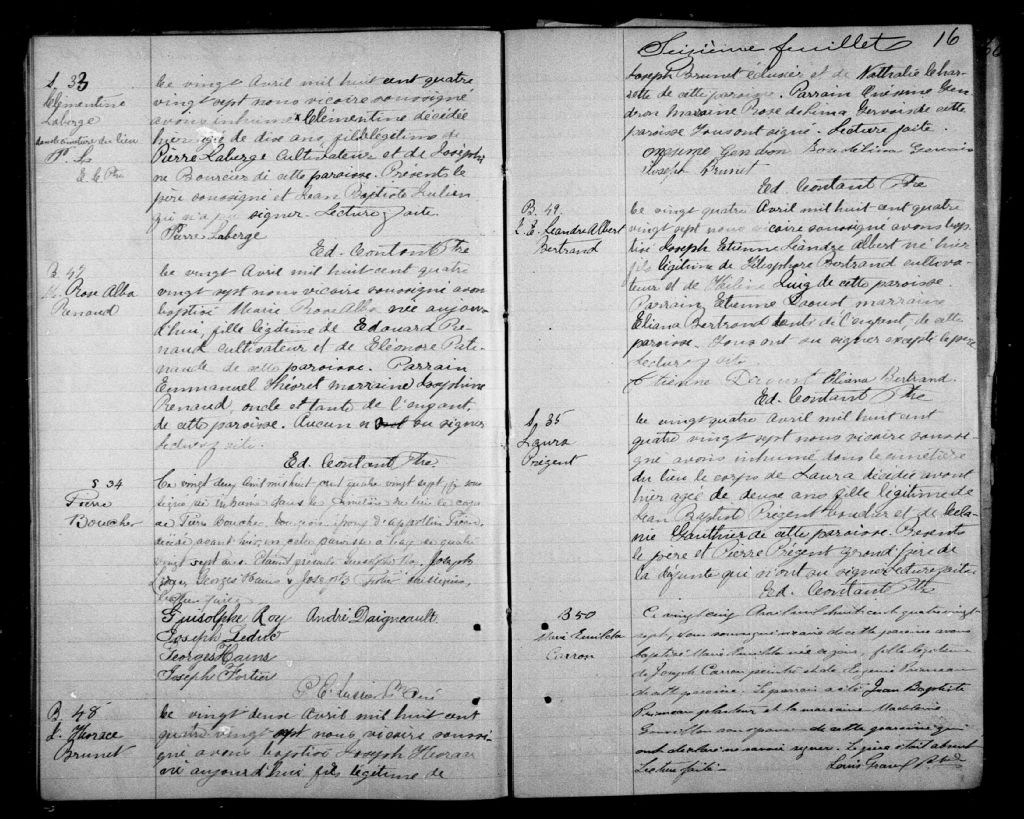 S. 33
Clémentine
Laberge
dans le cimetière du lieu
E. C. Ptre
Ce vingt Avril mil huit cent quatre
vingt sept nous vicaire soussigné
avons inhumé Clémentine décédée
hier agée de dix ans, fille légitime de
Pierre Laberge Cultivateur et de Josephi
ne Boursier de cette paroisse. Presents le
père soussigné et Jean Baptiste Julien
qui n'a pu signer. Lecture faite
Pierre Laberge
Ed. Contant Ptre
B. 47
M. Rose Alba
Renaud
Ce vingt Avril mil huit cent quatre
vingt sept nous vicaire soussigné avons
baptisé Marie Rose Alba née aujour
d'hui, fille légitime de Edouard Re
naud cultivateur et de Eléonore Pite
naude de cette paroisse. Parrain
Emmanuel Théoret marraine Josephine
Renaud, oncle et tante de l'enfant,
de cette paroisse. Aucun n'a su signer
Lecture faite.
Ed. Contant Ptre
S 34
Pierre
Boucher
Ce vingt deux Avril mil huit cent quatre vingt sept, je sous
signé ai inhumé dans le cimetière du lieu le corps
de Pierre Boucher, bourgeois, époux d'Appolline
décédé avant hier, en cette paroisse à l'age de quatre
vingt sept ans. Etaient présents Guisolphe Roy, Joseph
Leduc, Georges Hains & Joseph Fortier soussignés,
Lecture faite
Guisolphe Roy André Daigneault
Joseph Leduc
Georges Hains
Joseph Fortier
P. E. Lussier Ptre Curé
B. 48
J. Horace
Brunet
Ce vingt deux Avril mil huit cent
quatre vingt sept nous vicaire soussi
gné avons baptisé Joseph Horace
né aujourd'hui fils légitime de
Seizième feuillet 16
Joseph Brunet éclusier et de Nathalie Char
rette de cette paroisse. Parrain Onésime Gen
dron marraine Rose de Lima Gervais de cette
paroisse Tous ont signé. Lecture faite.
Onesime Gendron Rose de Lima Gervais
Joseph Brunet
Ed. Contant Ptre
B. 49
J. E. Leandre Albert
Bertrand
Ce vingt quatre Avril mil huit cent quatre
vingt sept nous vicaire soussigné avons bap
tisé Joseph Etienne Léandre Albert né hier
fils légitime de Télesphore Bertrand cultiva
teur et de Hélène de cette paroisse
Parrain Etienne Daoust marraine
Eliana Bertrand tante de l'enfant, de cette
paroisse. Tous ont su signer excepté le père
Lecture faite
Etienne Daoust Eliana Bertrand.
Ed. Contant Ptre
S. 35
Laura
Prégent
Ce vingt quatre Avril mil huit cent
quatre vingt sept nous vicaire soussi
gné avons inhumé dans le cimetière
du lieu le corps de Laura décédée avant
hier agée de deux ans fille légitime de
Jean Baptiste Prégent et de Méla
nie Gauthier de cette paroisse. Presents
le père et Pierre Prégent grand père de
la défunte qui n'ont su signer Lecture faite
Ed. Contant Ptre
B 50
Marie Emilda
Carron
Ce vingt cinq Avril mil huit cent quatre vingt
sept, nous soussigné vicaire de cette paroisse avons
baptisé Marie Emilda née ce jour, fille légitime
de Joseph Carron peintre et de Eugenie Primeau
de cette paroisse. Le parrain a été Jean Baptiste
Primeau et la marraine Madeleine
son epouse de cette paroisse qui
ont déclaré ne savoir signer. Le père était absent
Lecture faite
Louis Gravel Ptre